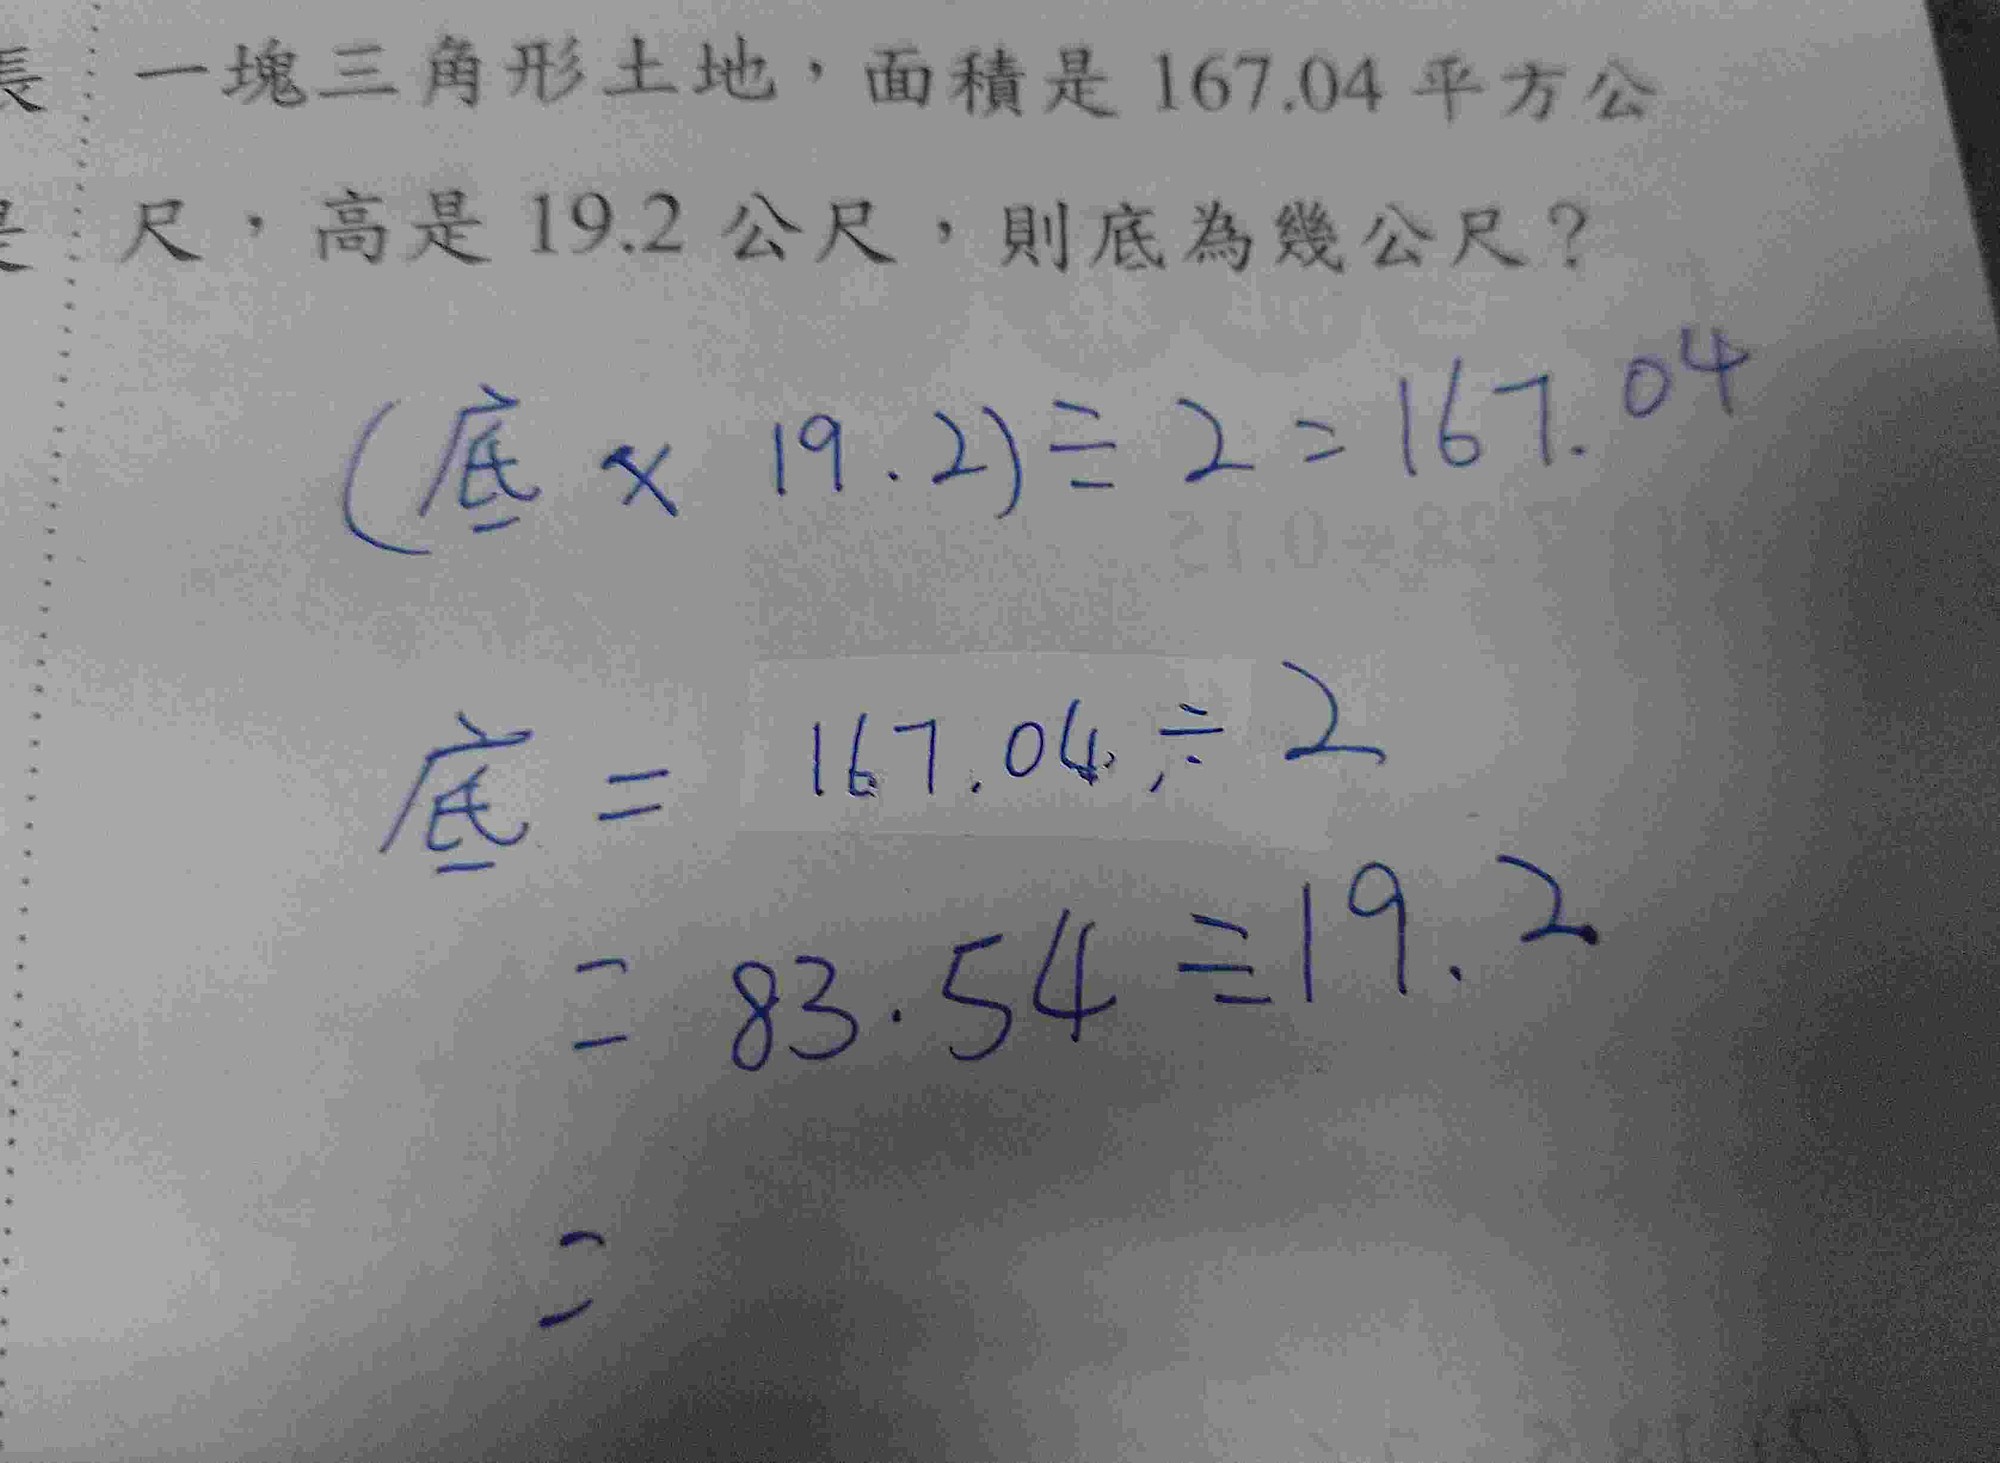 長 一塊三角形土地，面積是 167.04 平方公
是 尺，高是 19.2 公尺，則底為幾公尺？
(底 × 19.2) ÷ 2 = 167.04
底 = 167.04 ÷ 2
= 83.54 ÷ 19.2
=